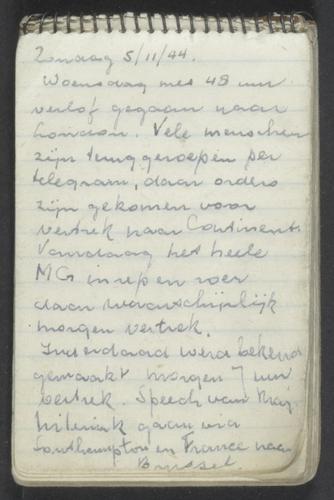 Zondag 5/11/44.
Woensdag met 48 uur
verlof gegaan naar
London. Vele menschen
zijn teruggeroepen per
telegram, daar orders
zijn gekomen voor
vertrek naar Continent.
Vandaag het heele
MG in rep en roer
daar waarschijnlijk
morgen vertrek.
Inderdaad werd bekend
gemaakt morgen 7 uur
vertrek. Speech van Maj.
gaan via
Southampton en France naar
Brussel.